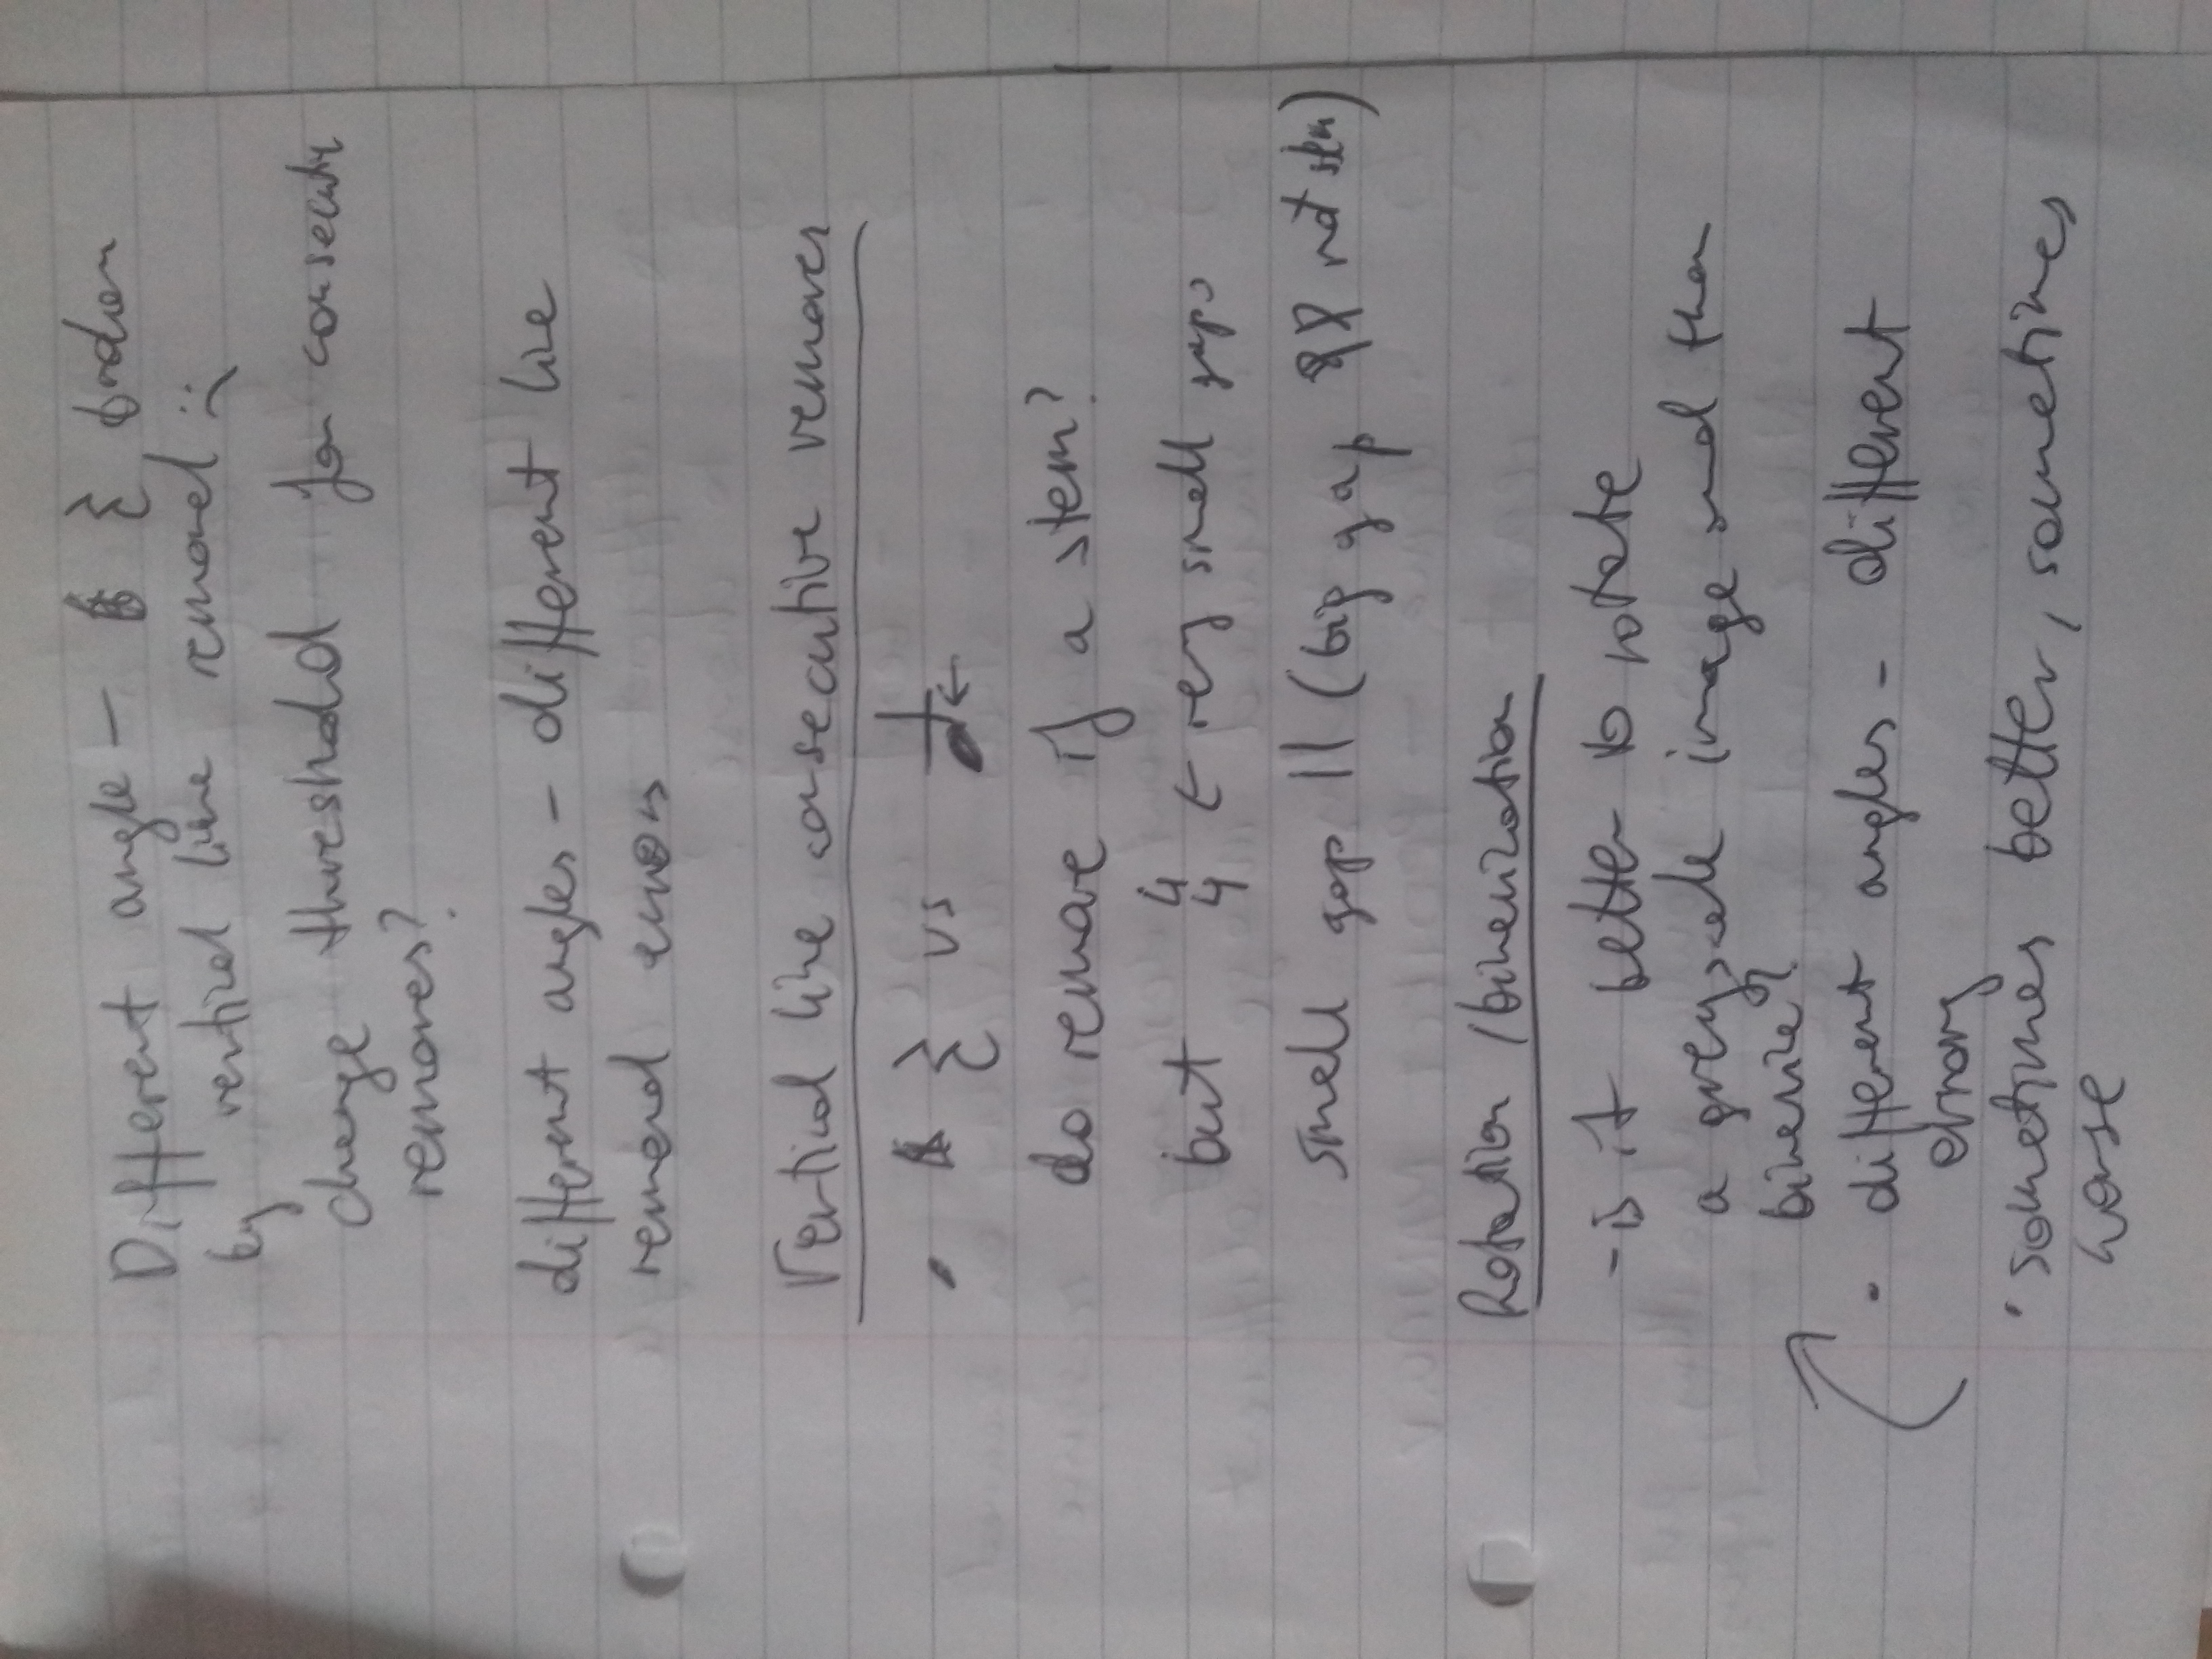 Different angle — broken
by vertical line removal :(
change threshold for consecutive
removes?
different angles – different line
removal errors
Vertical line consecutive removes
• vs ←
do remove if a stem?
but 4 4 ← very small gaps
small gap || (big gap && not stem)
Rotation / binerization
- is it better to rotate
a greyscale image and then
binerize?
• different angles – different
errors
• sometimes better, sometimes
worse